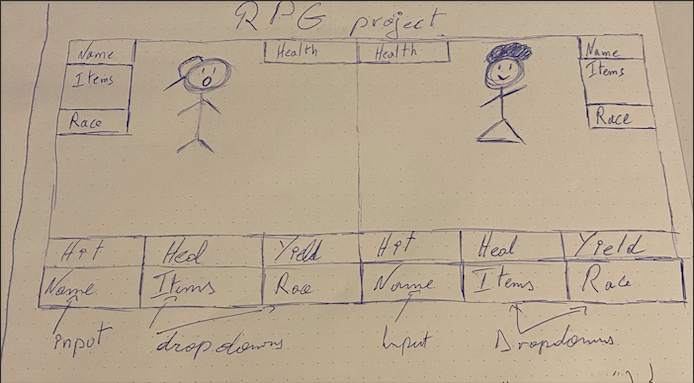 RPG project
Name Health Health Name
Items Items
Race Race
Hit Heal Yield Hit Heal Yield
Name Items Race Name Items Race
input dropdowns Input Dropdowns